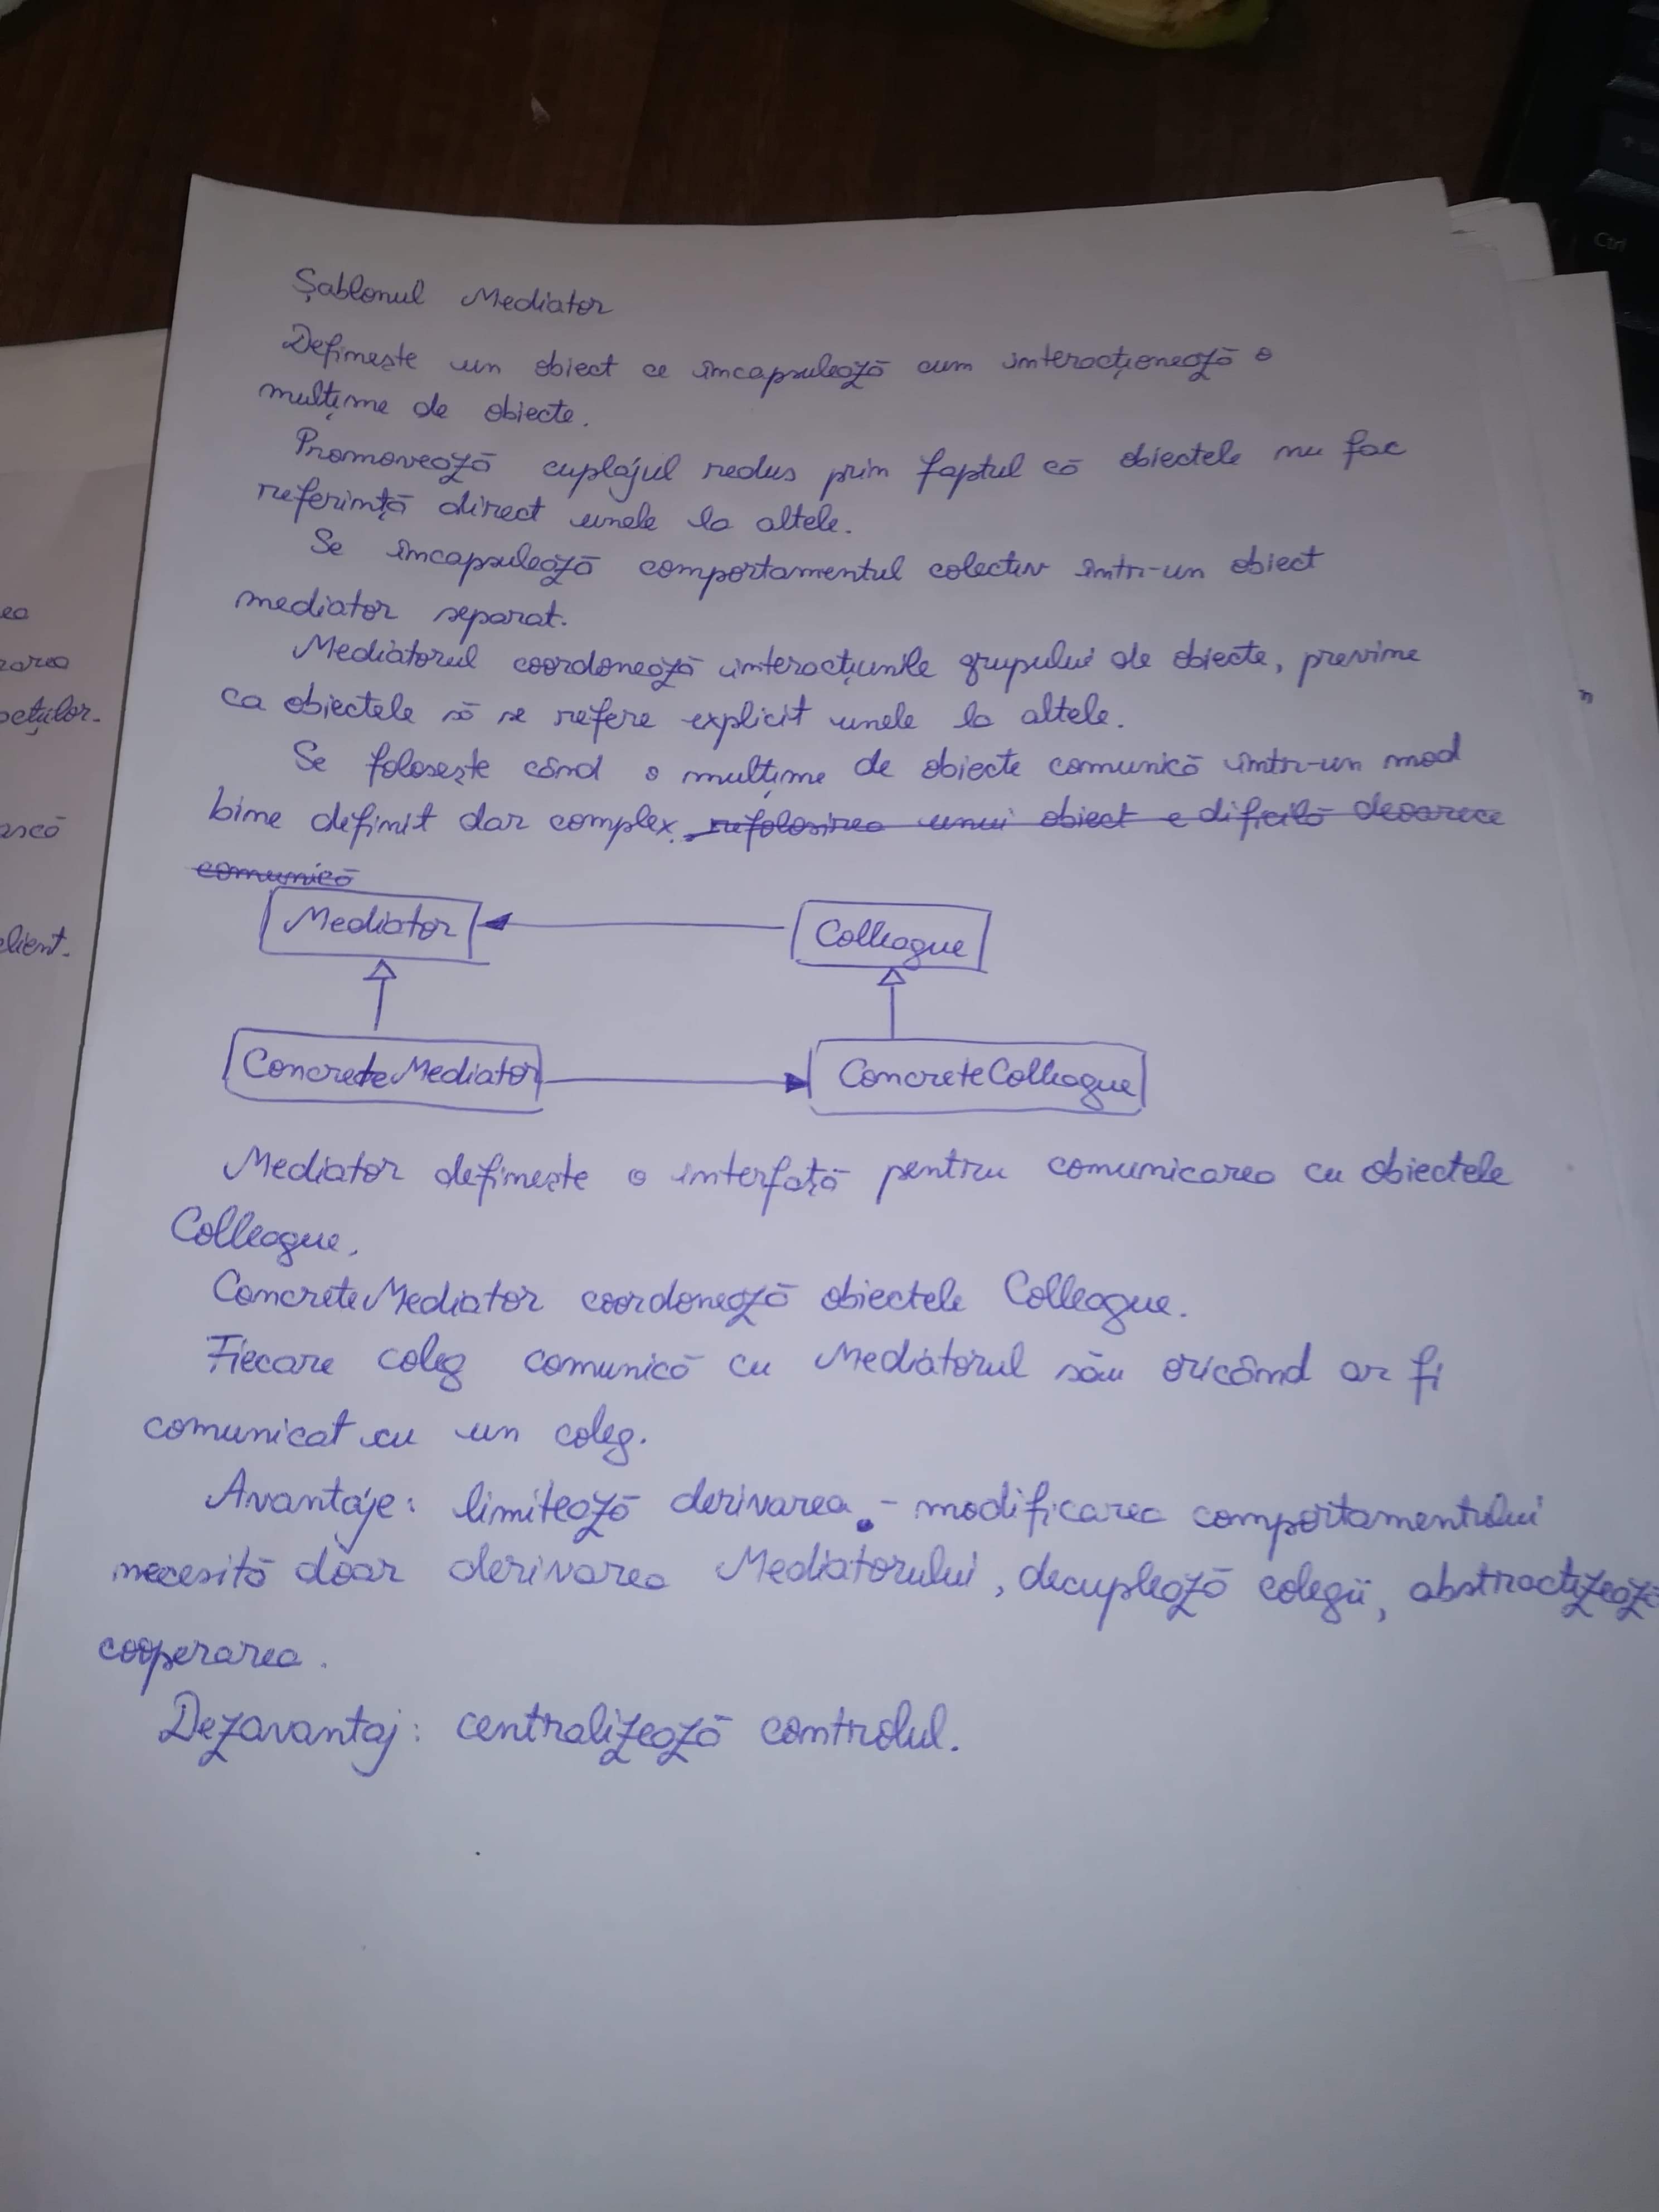 ea
rarea
pețiilor.
ască
client.
Șablonul Mediator
Definește un obiect ce încapsulează cum interacționează o
mulțime de obiecte.
Promovează cuplajul redus prin faptul că obiectele nu fac
referință direct unele la altele.
Se încapsulează comportamentul colectiv într-un obiect
mediator separat.
Mediatorul coordonează interacțiunile grupului de obiecte, previne
ca obiectele să se refere explicit unele la altele.
Se folosește când o mulțime de obiecte comunică într-un mod
bine definit dar complex. refolosirea unui obiect e dificilă deoarece
comunică
Mediator
Colleague
ConcreteMediator
ConcreteColleague
Mediator definește o interfață pentru comunicarea cu obiectele
Colleague.
ConcreteMediator coordonează obiectele Colleague.
Fiecare coleg comunică cu Mediatorul său oricând ar fi
comunicat cu un coleg.
Avantaje: limitează derivarea - modificarea comportamentului
necesită doar derivarea Mediatorului, decuplează colegii, abstractizează
cooperarea.
Dezavantaj: centralizează controlul.
Ctrl